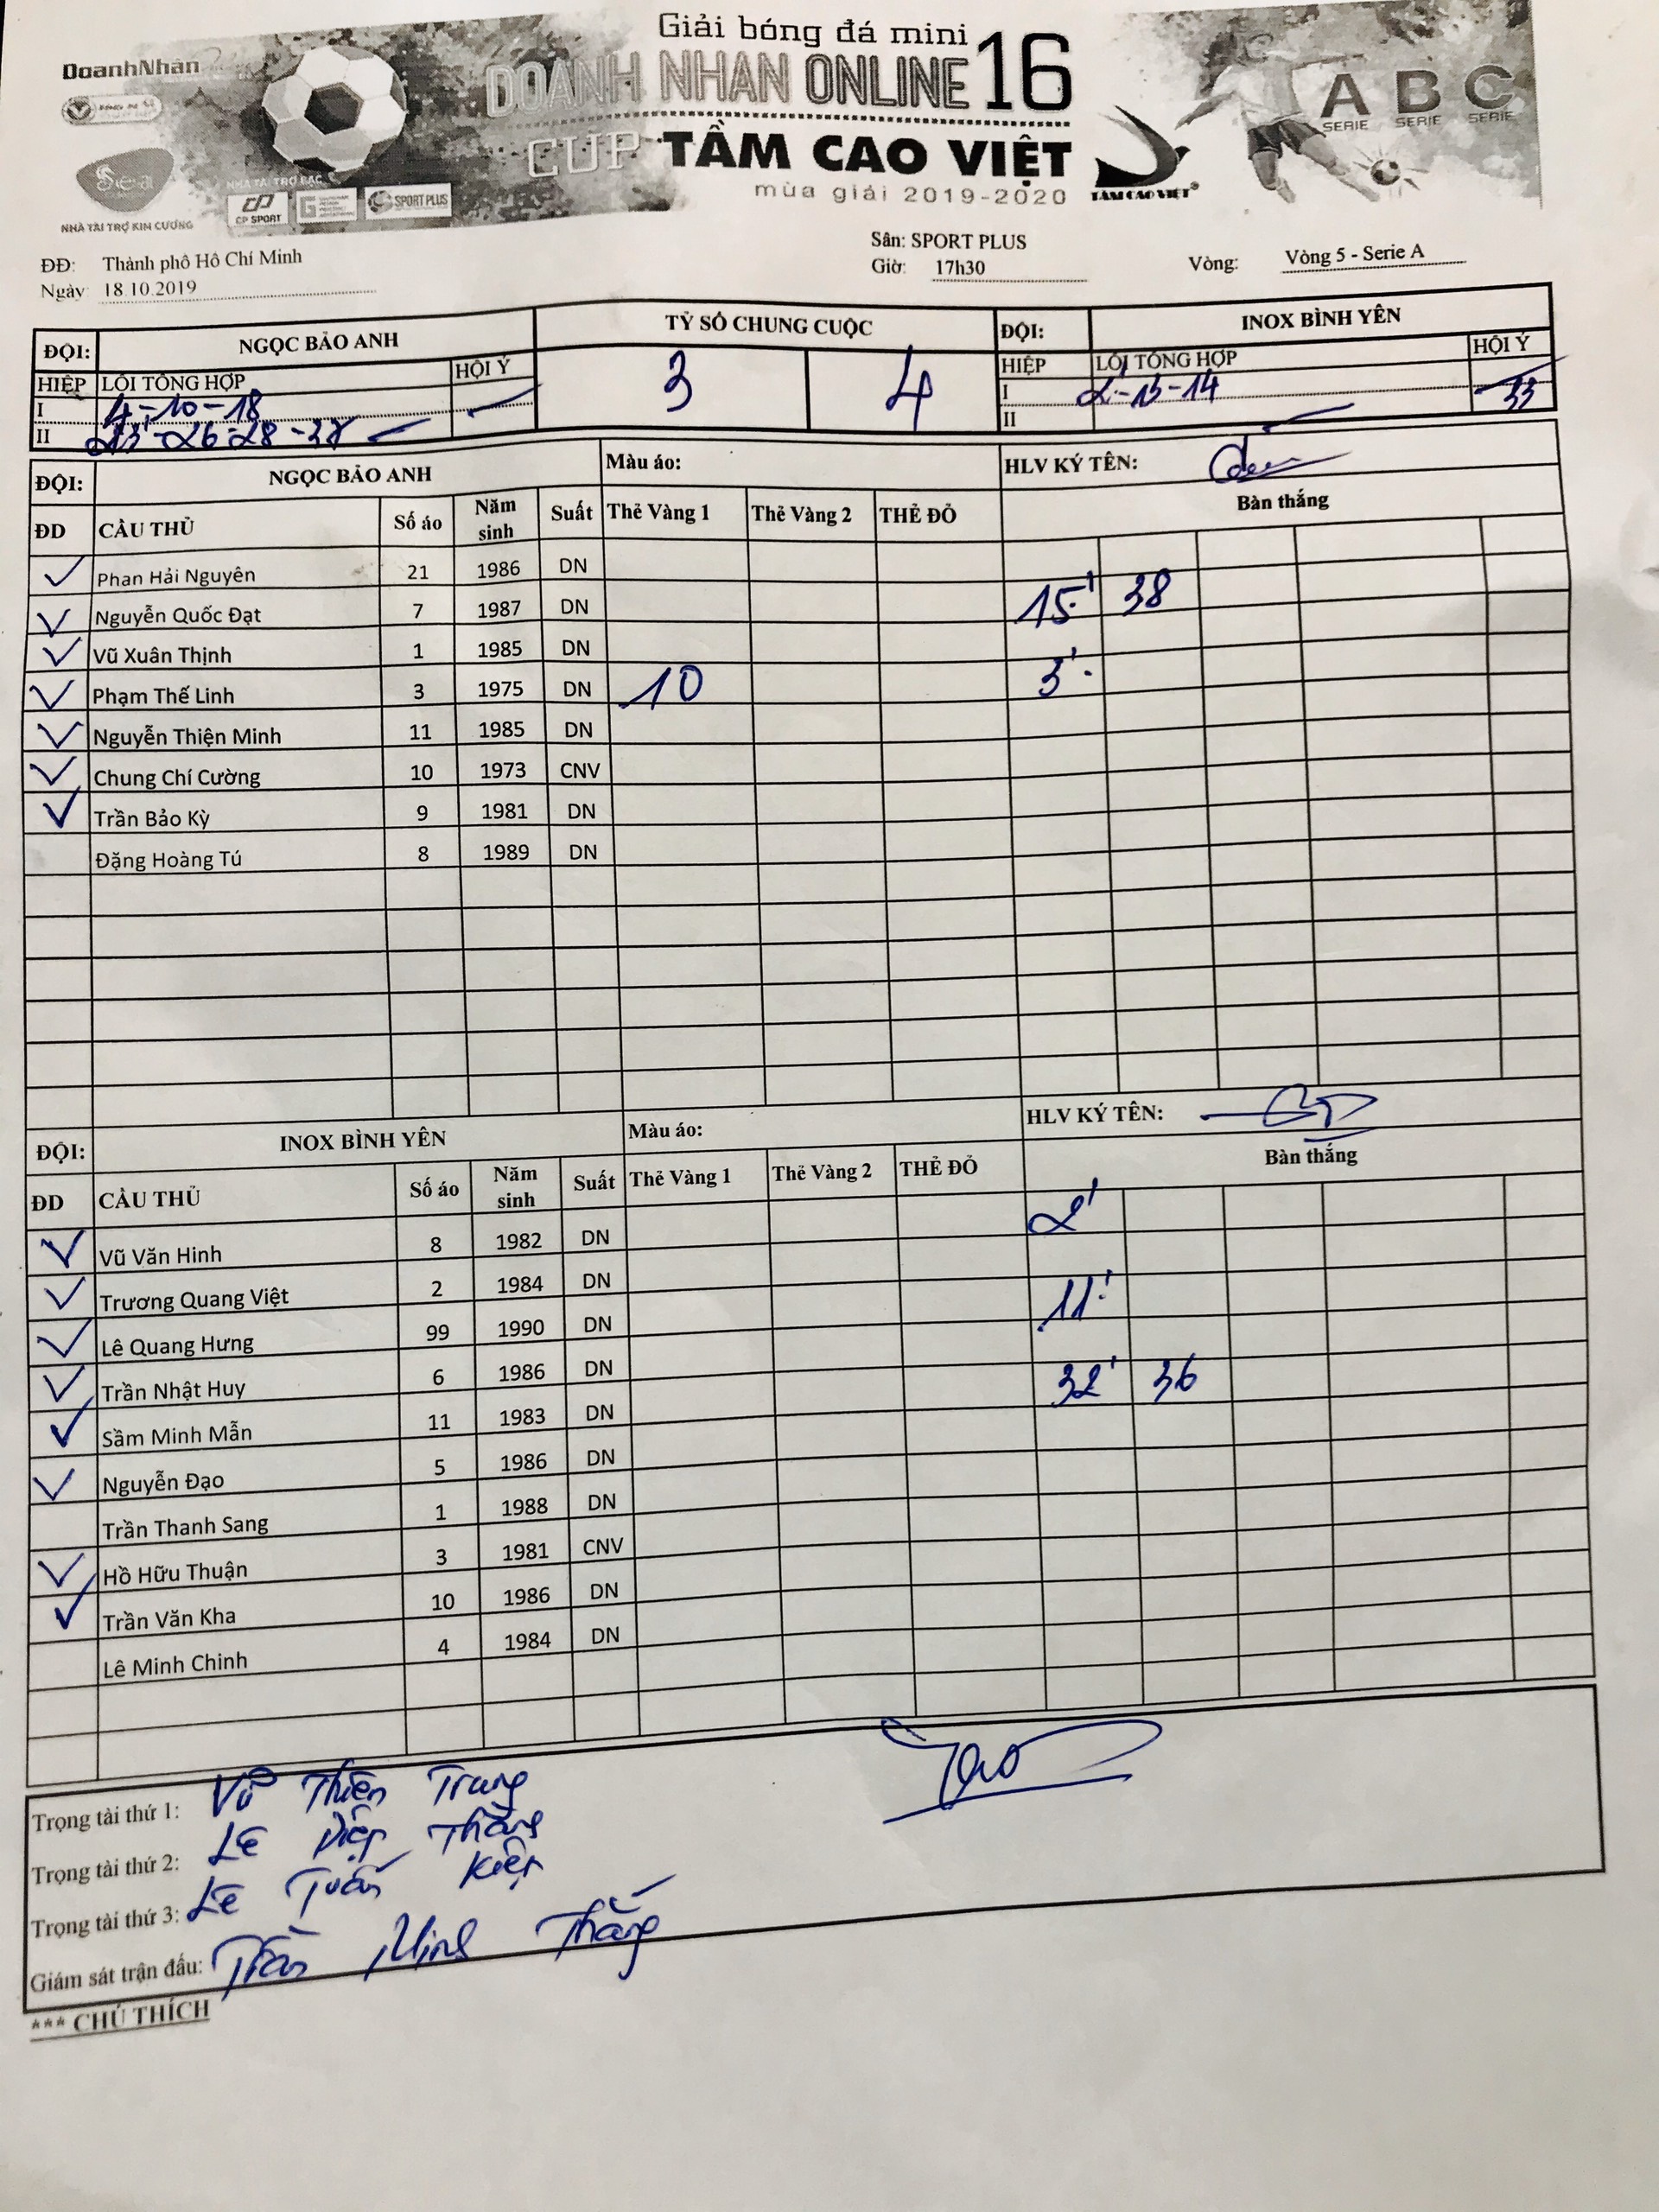 Giải bóng đá mini
DoanhNhân
DOANH NHAN ONLINE 16
CUP TẦM CAO VIỆT
mùa giải 2019-2020
A SERIE B SERIE C SERIE
TẦM CAO VIỆT
Sea
NHÀ TÀI TRỢ BẠC
CP SPORT
SPORT PLUS
NHÀ TÀI TRỢ KIM CƯƠNG
Sân: SPORT PLUS
ĐĐ: Thành phô Hô Chí Minh
Giờ: 17h30
Vòng: Vòng 5 - Serie A
Ngày: 18.10.2019
ĐỘI: NGỌC BẢO ANH TỶ SỐ CHUNG CUỘC ĐỘI: INOX BÌNH YÊN
HIỆP LỖI TỔNG HỢP HỘI Ý 3 4 HIỆP LỖI TỔNG HỢP HỘI Ý
I 4-10-18 I 2-13-14 33
II 23-26-28-38 II
ĐỘI: NGỌC BẢO ANH Màu áo: HLV KÝ TÊN:
ĐD CẦU THỦ Số áo Năm sinh Suất Thẻ Vàng 1 Thẻ Vàng 2 THẺ ĐỎ Bàn thắng
Phan Hải Nguyên 21 1986 DN
Nguyễn Quốc Đạt 7 1987 DN 15' 38
Vũ Xuân Thịnh 1 1985 DN
Phạm Thế Linh 3 1975 DN 10 3'
Nguyễn Thiện Minh 11 1985 DN
Chung Chí Cường 10 1973 CNV
Trần Bảo Kỳ 9 1981 DN
Đặng Hoàng Tú 8 1989 DN
ĐỘI: INOX BÌNH YÊN Màu áo: HLV KÝ TÊN:
ĐD CẦU THỦ Số áo Năm sinh Suất Thẻ Vàng 1 Thẻ Vàng 2 THẺ ĐỎ Bàn thắng
Vũ Văn Hinh 8 1982 DN 2'
Trương Quang Việt 2 1984 DN
Lê Quang Hưng 99 1990 DN 11'
Trần Nhật Huy 6 1986 DN
Sầm Minh Mẫn 11 1983 DN 32' 36
Nguyễn Đạo 5 1986 DN
Trần Thanh Sang 1 1988 DN
Hồ Hữu Thuận 3 1981 CNV
Trần Văn Kha 10 1986 DN
Lê Minh Chinh 4 1984 DN
Trọng tài thứ 1: Vũ Thiên Trang
Trọng tài thứ 2: Lê Diệp Thắng
Trọng tài thứ 3: Lê Tuấn Kiệt
Giám sát trận đấu: Trần Minh Thắng
*** CHÚ THÍCH